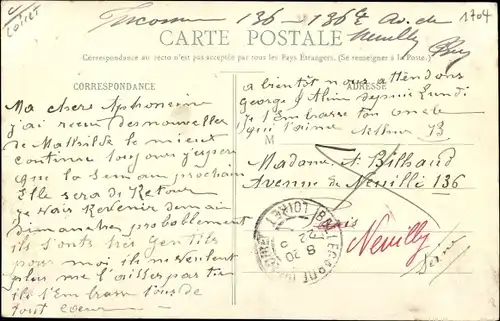 Loiret
Inconnu 136 - 136 Av. de
Neuilly
1704
CARTE POSTALE
Correspondance au recto n'est pas acceptée par tous les Pays Étrangers. (Se renseigner à la Poste.)
CORRESPONDANCE
Ma chere Alphonsine
j'ai recu des nouvelles
de Mathilde le mieux
continue toujours j'espere
que la Semain prochain
Elle sera de Retour
je vais Revenir demain
dimanche probablement
ils sont trés gentils
pour moi ils ne veulent
plus me laisser partir
ils t'Embrasse tous de
tout coeur
ADRESSE
a bientôt nous attendons
george depuis Lundi
je t'Embrasse ton oncle
qui t'aime
M
Madame A. Bilhaud
Avenue de Neuillé 136
Paris
Neuilly
Seine
LOIRET